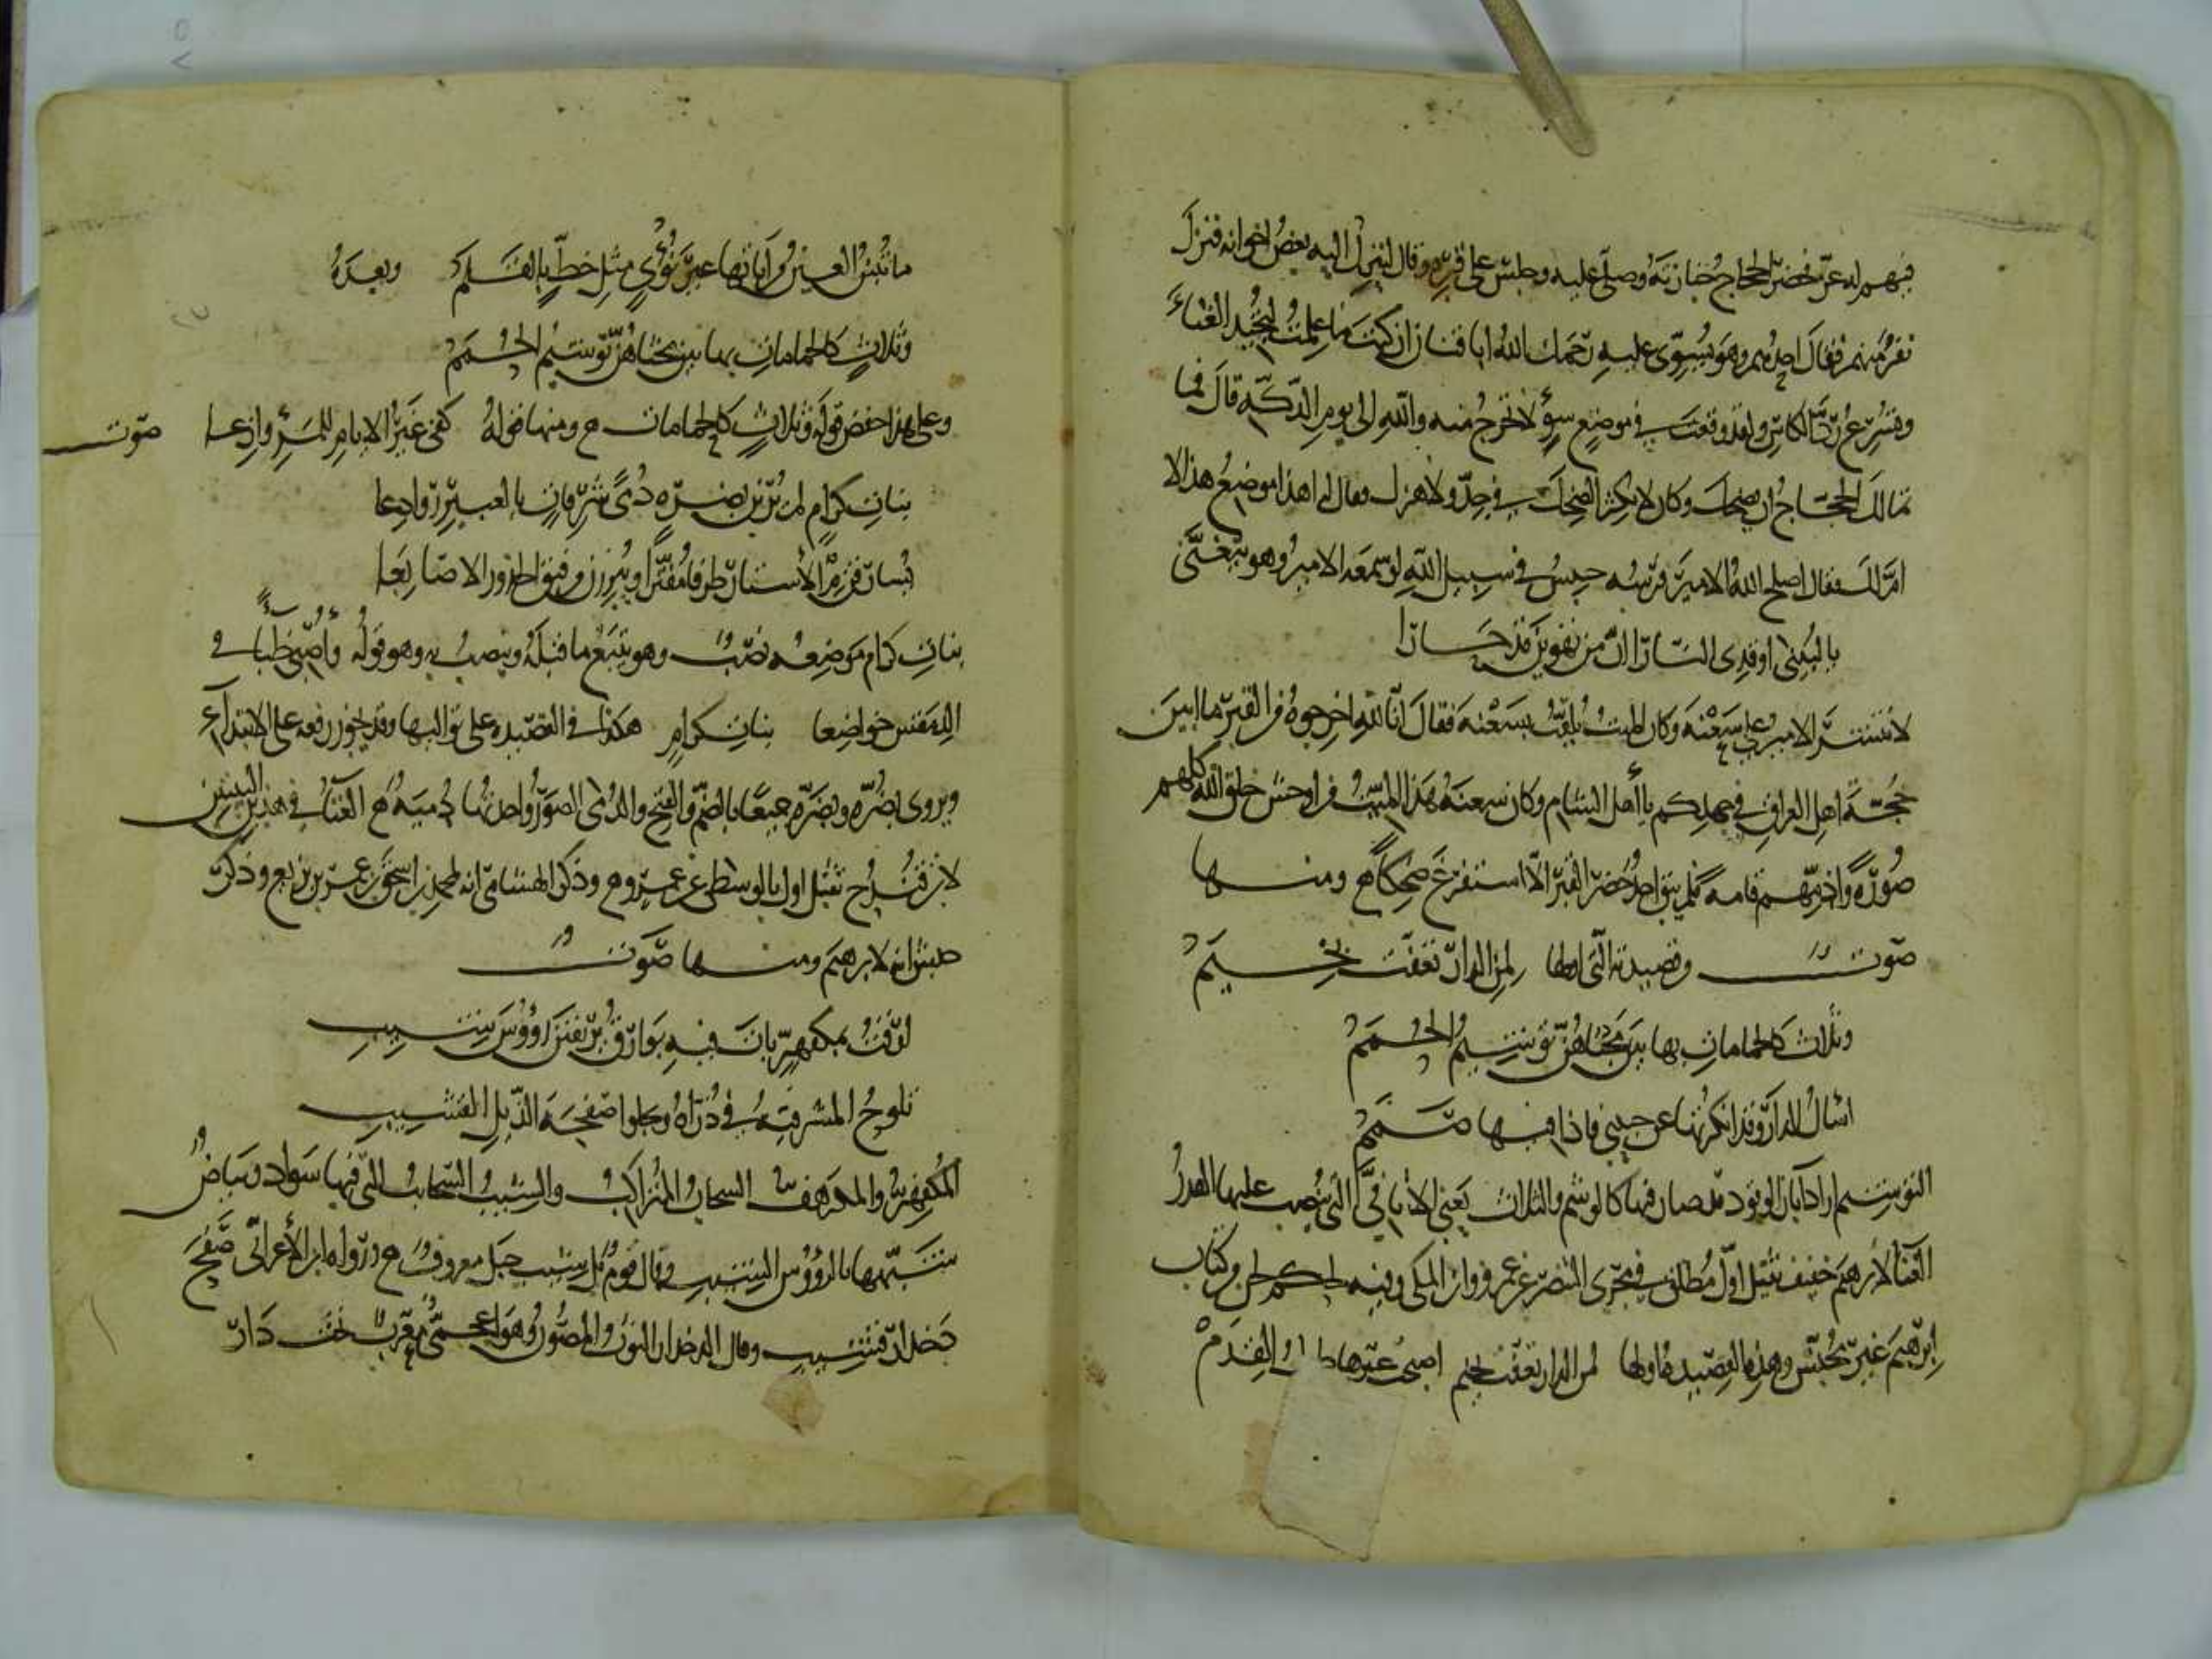 منهم له عز فحضر الحجاج جنازته وصلى عليه وجلس على قبره وقال لينزل اليه بعض اخوانه فنزل
نفر منهم فقال احدهم وهو يسوى عليه رحمك الله ابا قنان ان كنت ما علمت لتجيد الغناء
وتسرع رد الكاس ولقد وقعت في موضع سوء لا تخرج منه والله الى يوم الدكة قال فما
تمالك الحجاج ان ضحك وكان لا يكثر الضحك في جد ولا هزل فقال له اهذا موضع هذا لا
ام لك فقال اصلح الله الامير فرسه حبيس في سبيل الله لو سمعه الامير وهو يتغنى
يا لبينى اوقدى النارا ان من تهوين قد حارا
لانتشر الامير على سعنة وكان الميت يلقب بسعنة فقال انا لله اخرجوه من القبر ما ابين
حجة اهل العراق في جهلكم يا اهل الشام وكان سعنة هذا الميت من اوحش خلق الله كلهم
صورة واذمهم قامة فلم يبق احد حضر القبر الا استفرغ ضحكا ومنها
صوت وقصيدته التى اولها لمن الدار تعفت بخيم
وثلاث كالحمامات بها بين مجثاهن توشيم الحمم
اسال الدار وقد انكرتها عن حبيبى فاذا فيها صمم
التوشيم اراد اثار الوقود قد صار فيها كالوشم والثلاث يعنى الاثافى التى ينصب عليها القدر
الغنا لابرهيم خفيف ثقيل اول مطلق في مجرى البنصر عن عمرو وابن المكى وفيه لحكم لحن من كتاب
ابرهيم غير مجنس وهذه القصيدة اولها لمن الدار تعفت بخيم اصبحت غيرها طول القدم
ما تبين العين من اياتها غير نؤى مثل خط بالقلم وبعده
وثلاث كالحمامات بها بين مجثاهن توشيم الحمم
وعلى هذا خفض قوله وثلاث كالحمامات ومنها قوله كفى غير الايام للمرء وازعا صوت
بنات كرام لم يربن بضرة دمى شرقات بالعبير روادعا
يسارقن م الاستار طرفا مفترا ويبرزن من فتق الخدور الاصابعا
بنات كرام موضعه نصب وهو يتبع ما قبله وينصب به وهو قوله واصبى ظباء في
الدمقس خواضعا بنات كرام هكذا في القصيدة على تواليها وقد يجوز رفعه على الابتداء
ويروى بضره وبضره جميعا بالضم والفتح والدمى الصور واحدتها دمية الغناء في هذين البيتين
لابن قندح ثقيل اول بالوسطى عن عمرو وذكر الهشامى انه لمحمد بن اسحق بن عمر بن بزيع وذكر
حبش انه لابرهيم ومنها صوت
ارقت لمكفهر بات فيه بوارق يرتقين رؤوس شيب
تلوح المشرفية في ذراه ويجلوا صفحة الذيل القشيب
المكفهر والمكرهف السحاب المتراكب والشيب السحائب التى فيها سواد وبياض
شبهها بالرؤوس الشيب وقال قوم بل شيب جبل معروف رواه ابن الاعرابى صفح
دخدار قشيب وقال الدخدار الثوب المصون وهو اعجمى معرب تخت دار